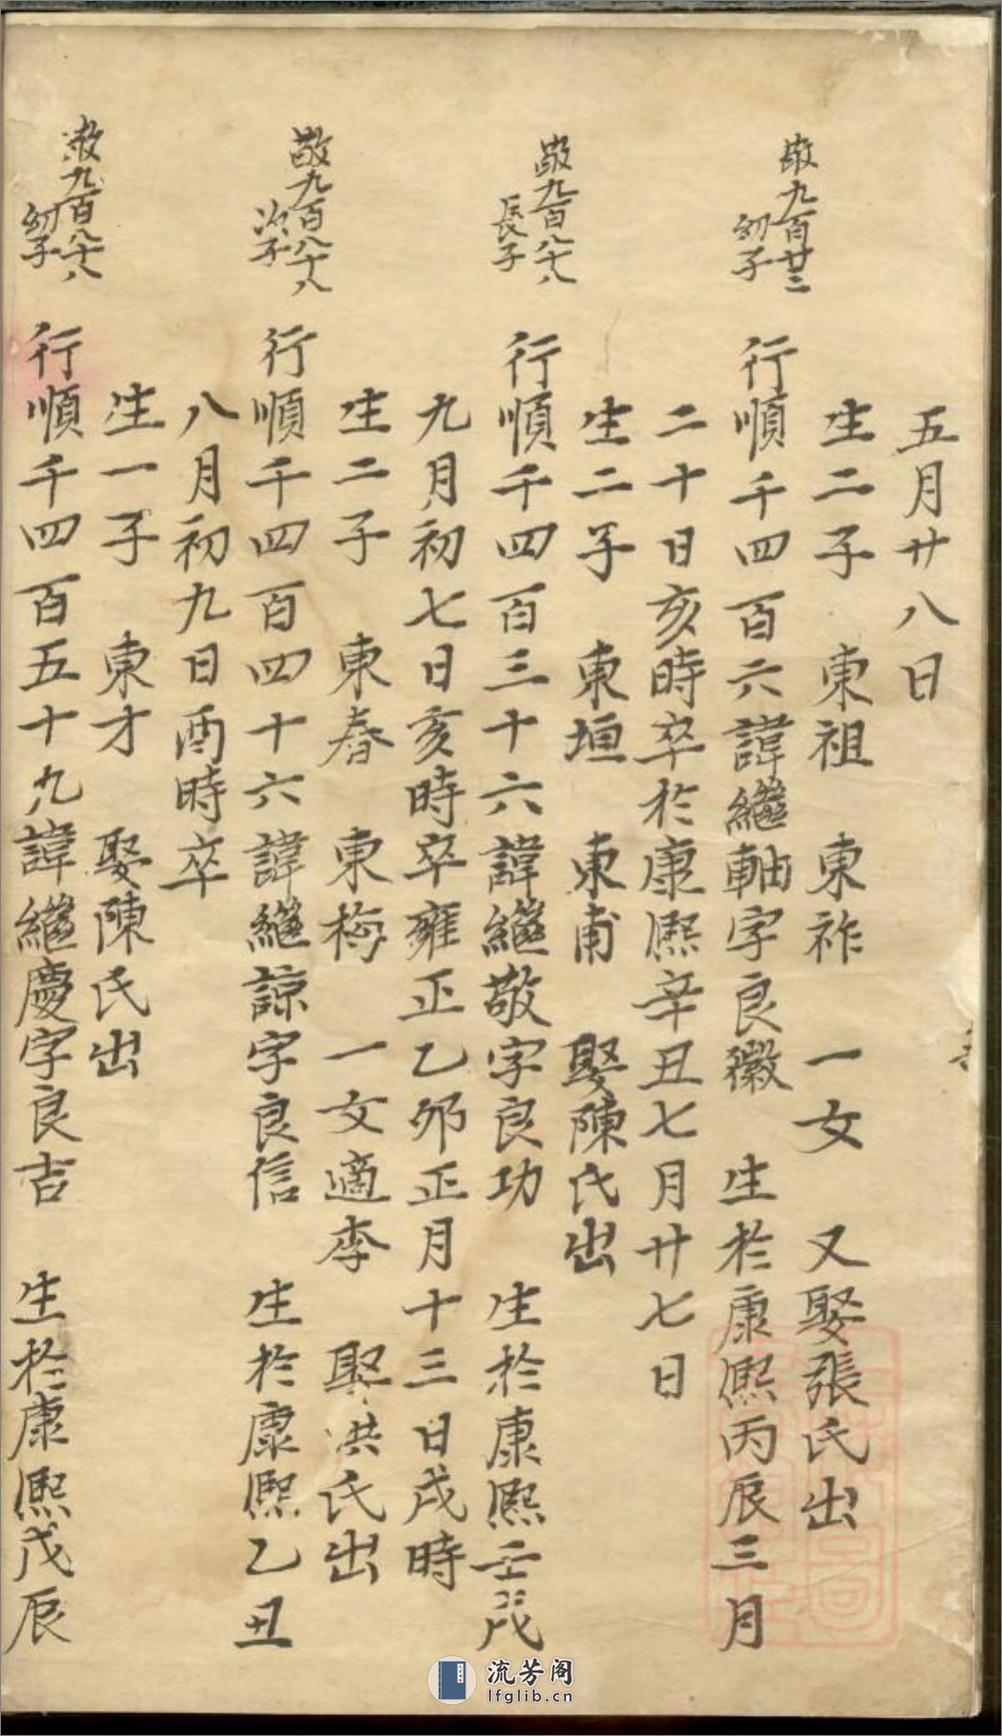 五月廿八日
生二子 東祖 東祚 一女 又娶張氏出
敬九百廿三
幼子
行順千四百六諱繼軸字良徽 生於康熙丙辰三月
二十日亥時卒於康熙辛丑七月廿七日
生二子 東垣 東甫 娶陳氏出
敬九百八十八
長子
行順千四百三十六諱繼敬字良功 生於康熙壬戌
九月初七日亥時卒雍正乙卯正月十三日戌時
生二子 東春 東梅 一女適李 娶洪氏出
敬九百八十八
次子
行順千四百四十六諱繼諒字良信 生於康熙乙丑
八月初九日酉時卒
生一子 東才 娶陳氏出
敬九百八十八
幼子
行順千四百五十九諱繼慶字良吉 生於康熙戊辰
流芳阁
lfglib.cn